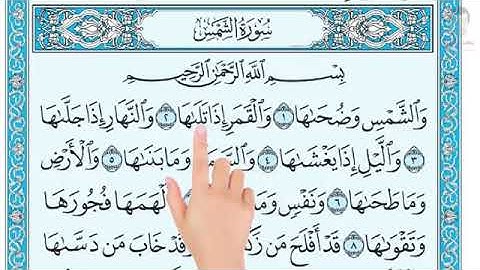 سُورَةُ الشَّمْسِ
بِسْمِ اللَّهِ الرَّحْمَٰنِ الرَّحِيمِ
وَالشَّمْسِ وَضُحَاهَا ١ وَالْقَمَرِ إِذَا تَلَاهَا ٢ وَالنَّهَارِ إِذَا جَلَّاهَا
٣ وَاللَّيْلِ إِذَا يَغْشَاهَا ٤ وَالسَّمَ وَمَا بَنَاهَا ٥ وَالْأَرْضِ
وَمَا طَحَاهَا ٦ وَنَفْسٍ وَمَا لْهَمَهَا فُجُورَهَا
وَتَقْوَاهَا ٨ قَدْ أَفْلَحَ مَن زَكَّ وَقَدْ خَابَ مَن دَسَّاهَا